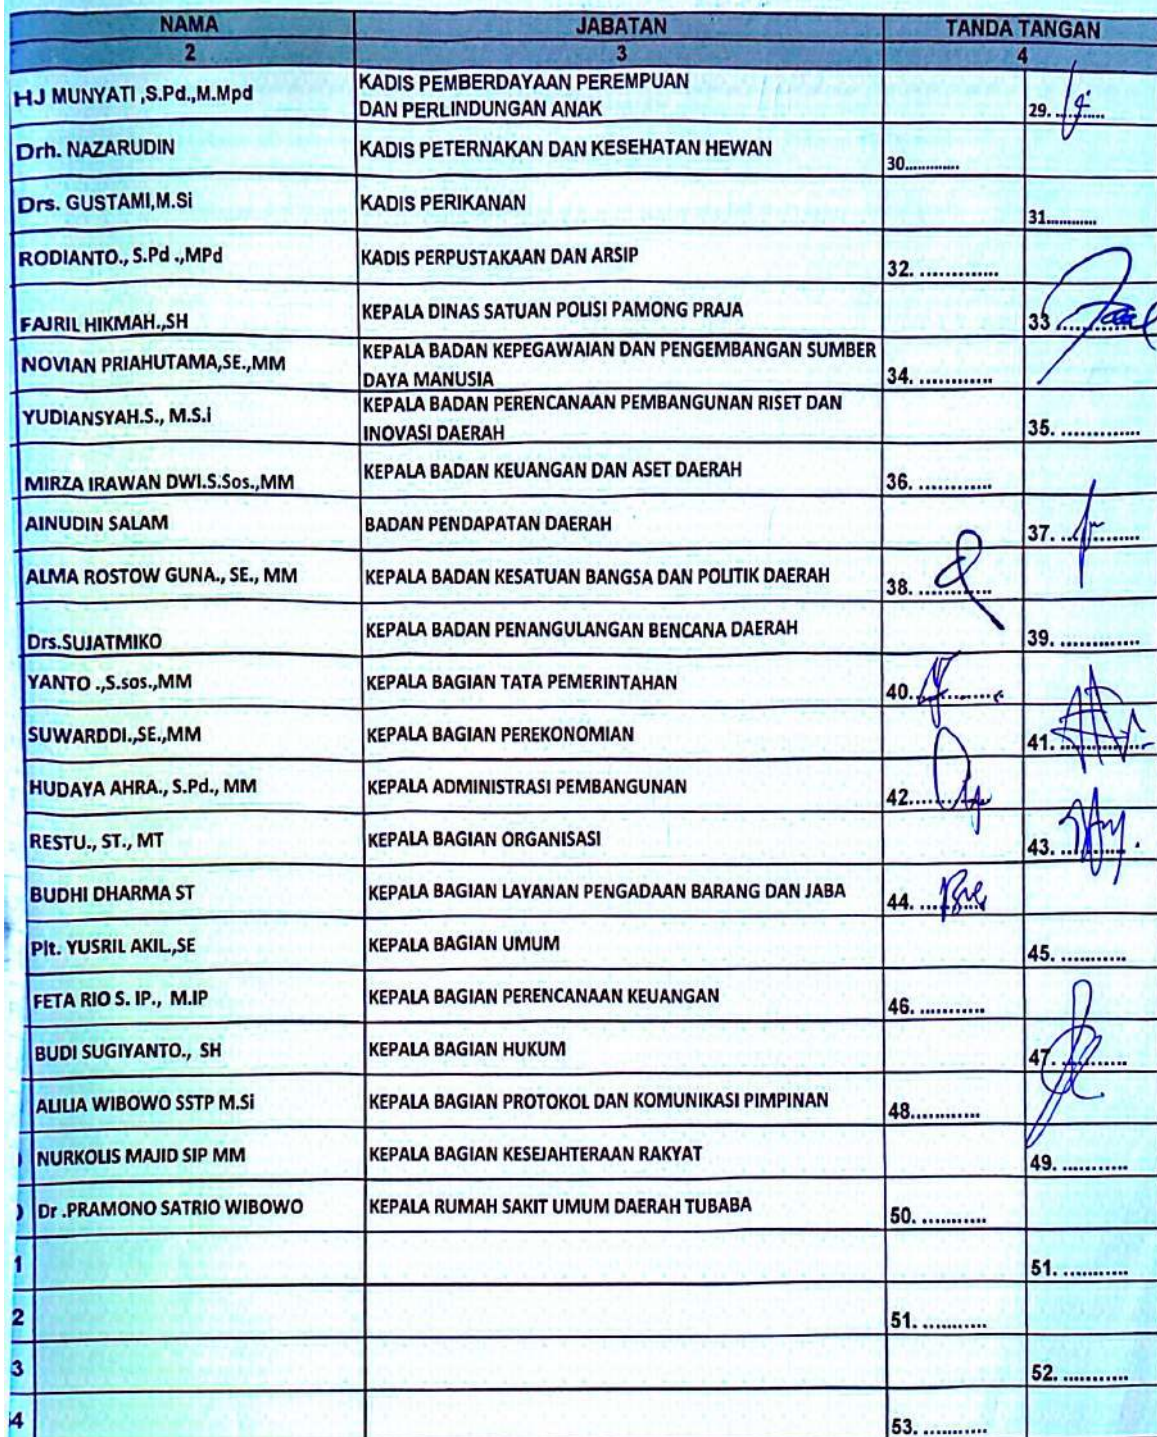 NAMA JABATAN TANDA TANGAN
2 3 4
HJ MUNYATI ,S.Pd.,M.Mpd KADIS PEMBERDAYAAN PEREMPUAN
DAN PERLINDUNGAN ANAK 29. ........
Drh. NAZARUDIN KADIS PETERNAKAN DAN KESEHATAN HEWAN 30.............
Drs. GUSTAMI,M.Si KADIS PERIKANAN 31............
RODIANTO., S.Pd .,MPd KADIS PERPUSTAKAAN DAN ARSIP 32. .............
FAJRIL HIKMAH.,SH KEPALA DINAS SATUAN POLISI PAMONG PRAJA 33 ............
NOVIAN PRIAHUTAMA,SE.,MM KEPALA BADAN KEPEGAWAIAN DAN PENGEMBANGAN SUMBER
DAYA MANUSIA 34. ............
YUDIANSYAH.S., M.S.i KEPALA BADAN PERENCANAAN PEMBANGUNAN RISET DAN
INOVASI DAERAH 35. .............
MIRZA IRAWAN DWI.S.Sos.,MM KEPALA BADAN KEUANGAN DAN ASET DAERAH 36. ............
AINUDIN SALAM BADAN PENDAPATAN DAERAH 37. ............
ALMA ROSTOW GUNA., SE., MM KEPALA BADAN KESATUAN BANGSA DAN POLITIK DAERAH 38. ............
Drs.SUJATMIKO KEPALA BADAN PENANGULANGAN BENCANA DAERAH 39. .............
YANTO .,S.sos.,MM KEPALA BAGIAN TATA PEMERINTAHAN 40..............
SUWARDDI.,SE.,MM KEPALA BAGIAN PEREKONOMIAN 41. .............
HUDAYA AHRA., S.Pd., MM KEPALA ADMINISTRASI PEMBANGUNAN 42............
RESTU., ST., MT KEPALA BAGIAN ORGANISASI 43. ............
BUDHI DHARMA ST KEPALA BAGIAN LAYANAN PENGADAAN BARANG DAN JABA 44. ............
Plt. YUSRIL AKIL,,SE KEPALA BAGIAN UMUM 45. ............
FETA RIO S. IP., M.IP KEPALA BAGIAN PERENCANAAN KEUANGAN 46. ............
BUDI SUGIYANTO., SH KEPALA BAGIAN HUKUM 47. ............
ALILIA WIBOWO SSTP M.Si KEPALA BAGIAN PROTOKOL DAN KOMUNIKASI PIMPINAN 48............
NURKOLIS MAJID SIP MM KEPALA BAGIAN KESEJAHTERAAN RAKYAT 49. ...........
Dr .PRAMONO SATRIO WIBOWO KEPALA RUMAH SAKIT UMUM DAERAH TUBABA 50. ...........
1 51. ............
2 51. ............
3 52. ............
4 53. ............